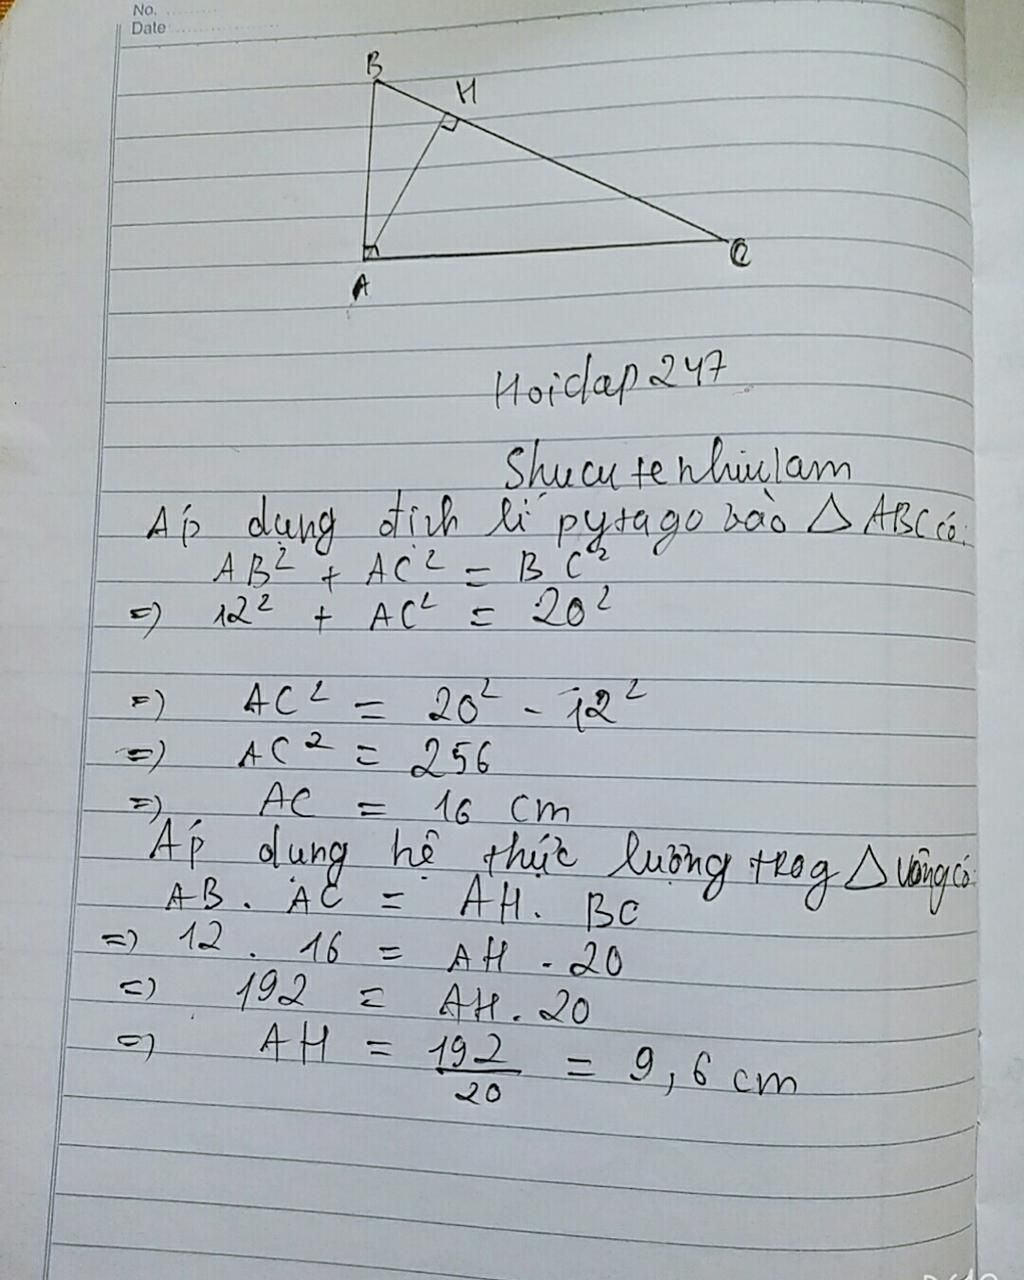 No.
Date
B
H
A
C
Hoidap247
Shucutenhiulam
Áp dụng định lí pytago vào △ ABC có:
AB² + AC² = BC²
=) 12² + AC² = 20²
=) AC² = 20² - 12²
=) AC² = 256
=) AC = 16 cm
Áp dụng hệ thức lượng trog △ vuông có
AB . AC = AH . BC
=) 12 . 16 = AH . 20
=) 192 = AH . 20
=) AH = 192/20 = 9,6 cm